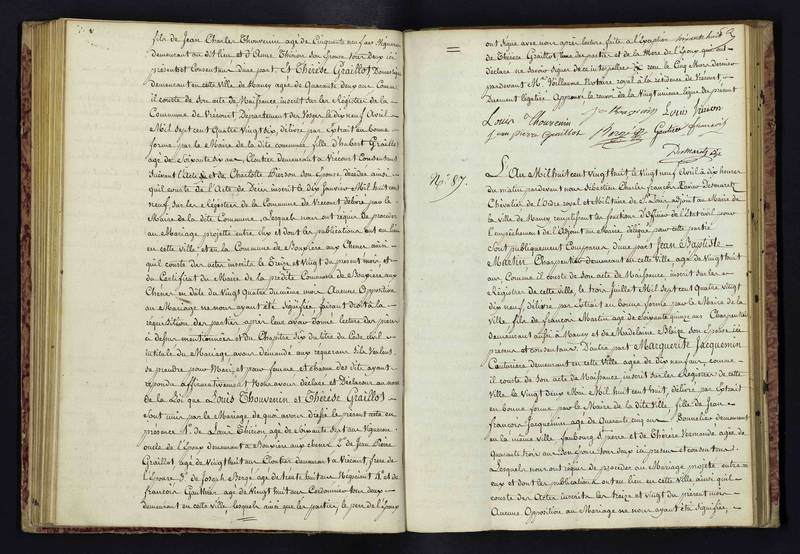 fils de Jean Charles Thouvenin agé de Cinquante neuf ans Vigneron
demeurant au dit lieu et d'Anne Thirion son Epouse tous deux ici
présents et Consentans d'une part. Et Thérèse Graillot Domestique
demeurant en cette Ville de Nancy agée de Quarante deux ans Comme
il conste de son acte de Naissance inscrit sur les Registres de la
Commune de Viocourt Département des Vosges le dix neuf Avril
Mil Sept cent Quatre Vingt six, délivré par Extrait en bonne
forme par le Maire de la dite commune, fille d'hubert Graillot
agé de Soixante six ans Cloutier demeurant a Viocourt Consentant
Suivant l'Acte et de Charlotte Pierson son Epouse décédée ainsi
qu'il conste de l'Acte de Décès inscrit le dix Janvier Mil huit cent
neuf sur les Registres de la Commune de Viocourt délivré par le
Maire de la dite Commune, Lesquels nous ont requis de procéder
au Mariage projetté entre eux et dont les publications ont eu lieu
en cette ville et en la Commune de Bouxières aux Chênes ainsi
qu'il conste des actes inscrits les Treize et Vingt du présent mois et
du Certificat du Maire de la prédite Commune de Bouxières aux
Chênes en date du Vingt Quatre du même mois Aucune Opposition
au Mariage ne nous ayant été signifiée, faisant droit à la
réquisition des parties après leur avoir donné lecture des pièces
ci dessus mentionnées et du Chapitre Six du titre du Code civil
intitulé du Mariage avons demandé aux requerans S'ils Veulent
se prendre pour Mari et pour femme et chacun d'eux ayant
répondu affirmativement Nous avons déclaré et Déclarons au nom
de la Loi que Louis Thouvenin et Thérèse Graillot
Sont unis par le Mariage de quoi avons dressé le présent acte en
présence 1° de Louis Thirion agé de Soixante sept ans Vigneron
oncle de l'Epoux demeurant a Bouxières aux chênes 2° de Jean Pierre
Graillot agé de Vingt huit ans Cloutier demeurant a Viocourt, frère de
l'Epouse 3° de Joseph Bergé agé de trente huit ans Négociant 4° et de
François Gauthier agé de Vingt huit ans Cordonnier tous deux
demeurant en cette ville, lesquels ainsi que les parties, le père de l'Epoux
ont signé avec nous après lecture faite à l'Exception
de Thérèse Graillot, l'une des parties et de la Mère de l'Epoux qui ont
déclaré ne savoir signer de ce interpellées sous le Cinq Mars dernier
pardevant Me Voillaume Notaire royal à la résidence de Viocourt,
Duement légalisé. Approuvé le renvoi de la Vingt unième ligne du présent
Louis Thirion
Louis Thouvenin
Jean pierre Graillot Bergé Gautier françois
Desmarets
N° 87.
L'An Mil huit cent Vingt huit le Vingt neuf Avril à dix heures
du matin pardevant nous Sébastien Charles François Desmarets
Chevalier de l'Ordre royal et Militaire de St Louis adjoint au Maire de
la Ville de Nancy remplissant les fonctions d'Officier de l'Etat civil pour
l'empêchement de l'Adjoint au Maire délégué pour cette partie
Sont publiquement Comparus d'une part Jean Baptiste
Martin Charpentier demeurant en cette Ville agé de Vingt huit
ans, Comme il conste de son acte de Naissance, inscrit sur les
Registres de cette ville, le trois Juillet Mil Sept cent Quatre vingt
dix neuf, délivré par Extrait en bonne forme par le Maire de la
Ville, fils de François Martin agé de Soixante quinze ans Charpentier
demeurant aussi à Nancy et de Madelaine Blaize son Epouse, ici
présens et consentans. D'autre part Marguerite Jacquemin
Couturière demeurant en cette Ville agée de Dix neuf ans, comme
il conste de son acte de Naissance inscrit sur les Registres de cette
Ville le Vingt deux Mai Mil huit cent huit, délivré par Extrait
en bonne forme par le Maire de la dite Ville, fille de Jean
François Jacquemin agé de Quarante cinq ans Bonnetier demeurant
en la même ville faubourg St pierre et de Thérèse Normandé agée de
Quarante trois ans son Epouse tous deux ici présens et consentans.
Lesquels nous ont requis de procéder au Mariage projetté entre
eux et dont les publications ont eu lieu en cette Ville ainsi qu'il
conste des Actes inscrits les treize et vingt du présent mois
Aucune Opposition au Mariage ne nous ayant été signifiée,